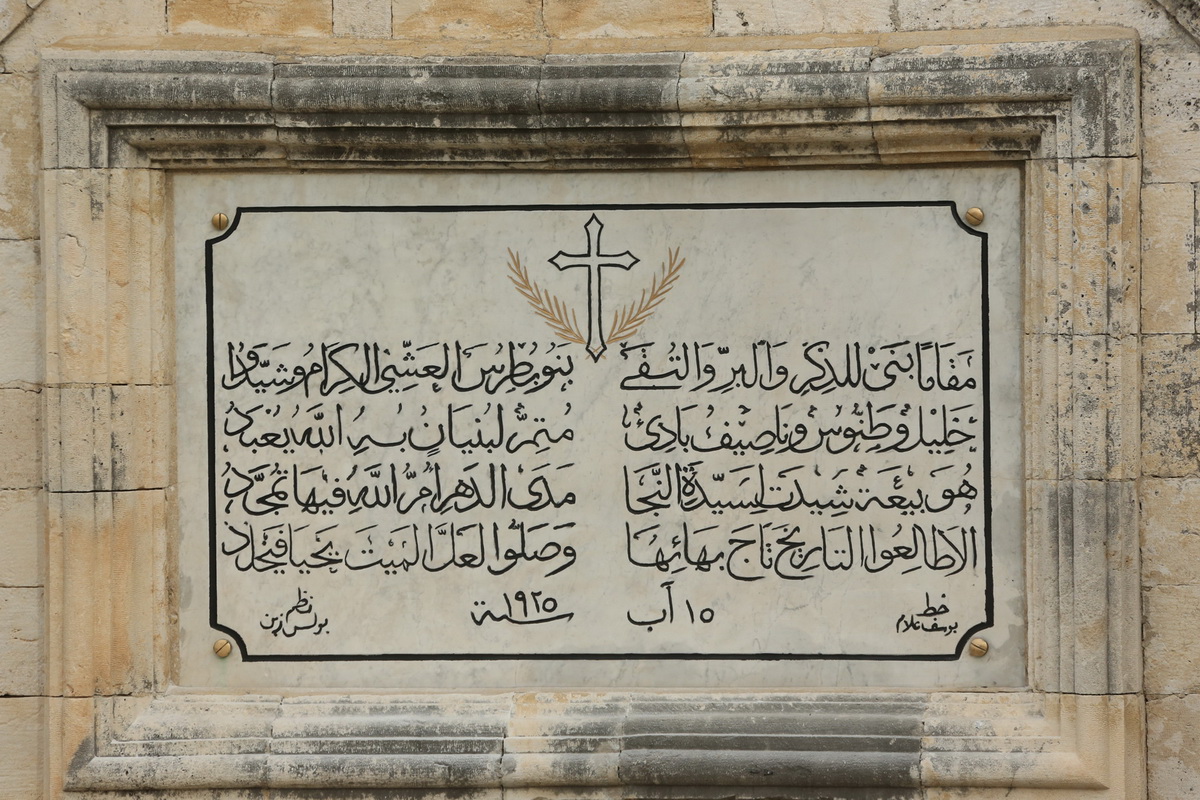 مَقَامًا بَنَىْ للذِكرِ وَالبِرِّ وَالتُقَىْ بَنوُ بطرُسَ العَشِّيّ الكِرَامُ وشَيَّدوُا
خَليْل وَطنّوُس وَناصِيْفُ بَادِئ مُتمِّمُ لبُنيَانٍ بهِ اللهُ يُعبَدُ
هُوَ بيْعَة شيْدَت لسَيّدَة النَّجَا مَدَى الدَهرِ امُّ اللهِ فيْهَا تمَجَّدُ
الا طالِعوُا التَاريْخ تَاجَ بهَائِهَا وَصَلّوُا لعَلَّ المَيْتَ يَحْيَا فَيَخلدُ
١٥ آب سنة ١٩٢٥
خط نظم
يوسف علام بولس زين